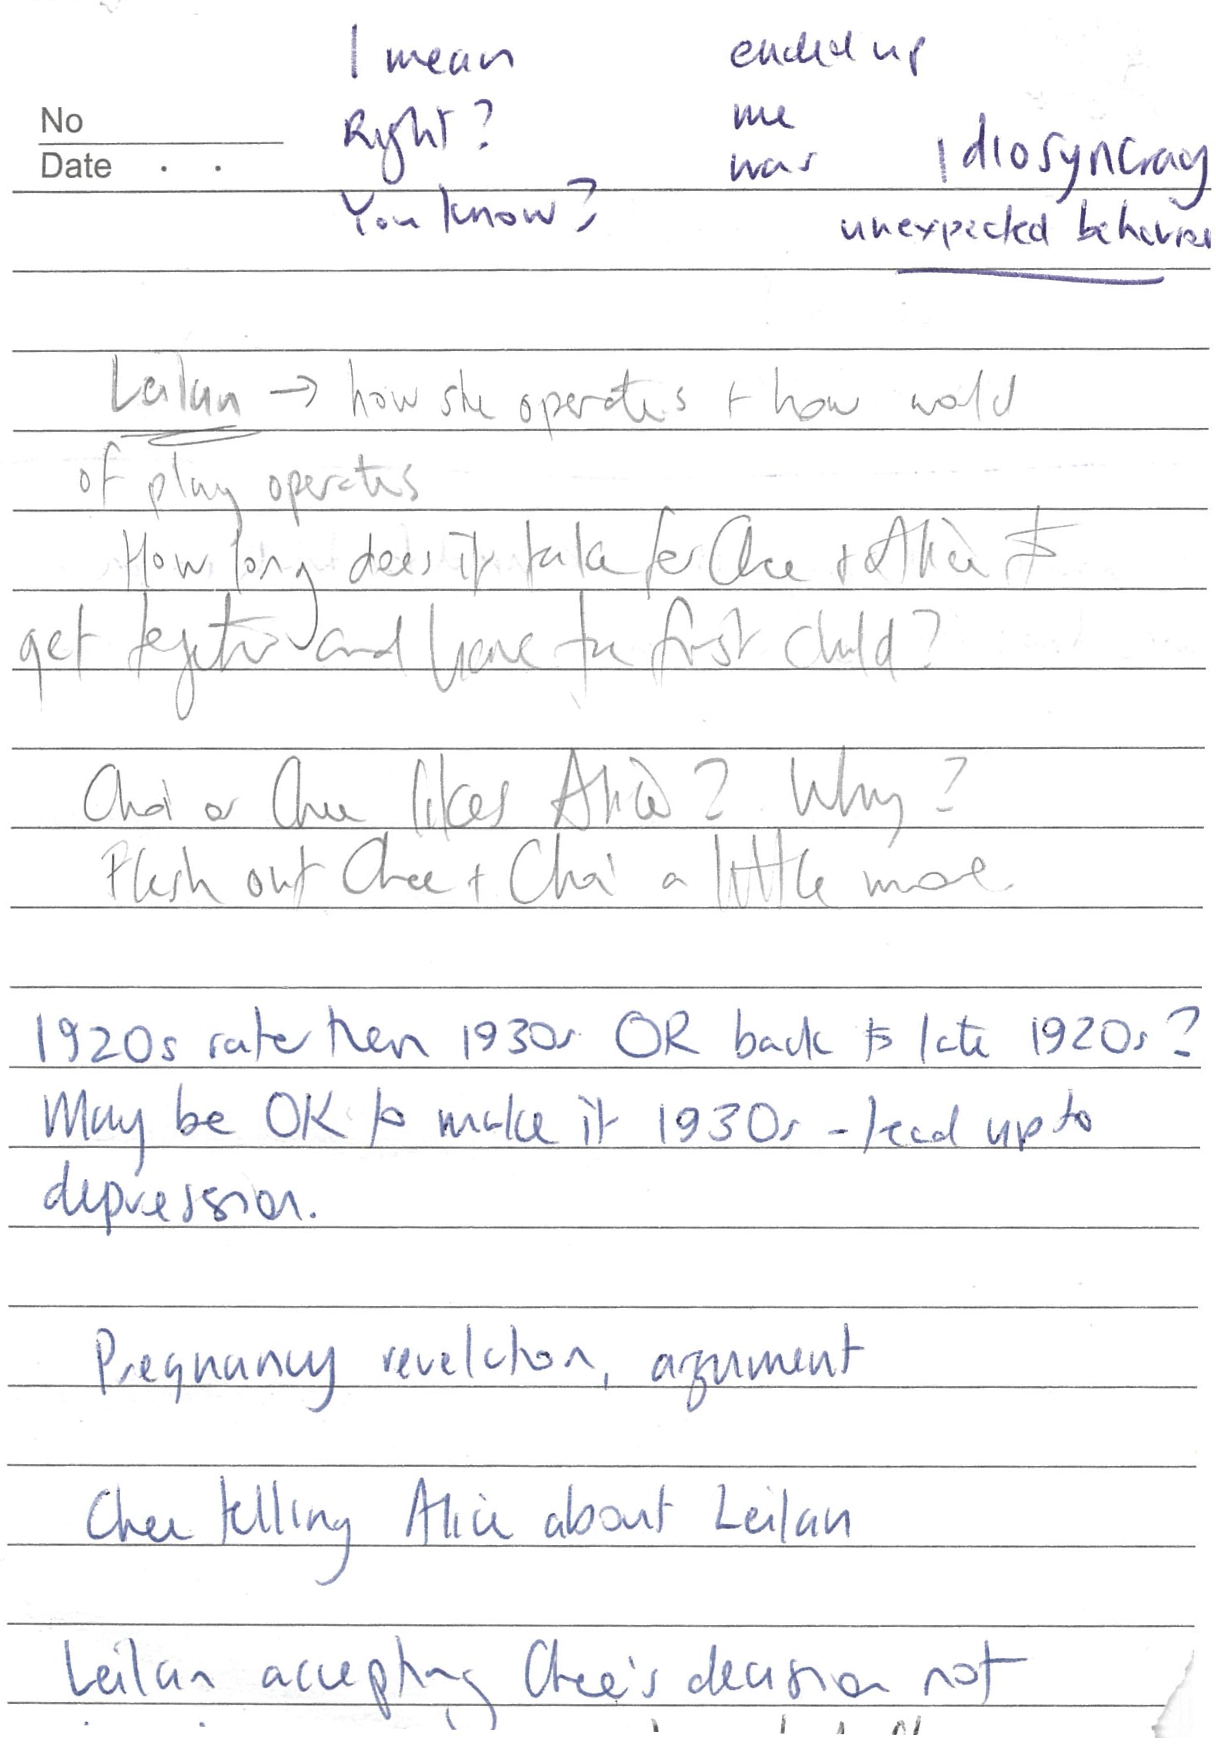 I mean
ended up
No
Right?
me
Date . .
was
Idiosyncracy
You know?
unexpected behavior
Leilan → how she operates + how world
of play operates
How long does it take for Chee + Alice to
get together and have the first child?
Chai or Chee likes Alice? Why?
Flesh out Chee + Chai a little more
1920s rather then 1930s OR back to late 1920s?
May be OK to make it 1930s - lead up to
depression.
Pregnancy revelation, argument
Chee telling Alice about Leilan
Leilan accepting Chee's decision not